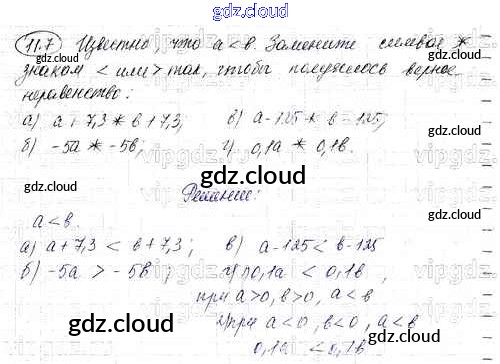 gdz.cloud
11.7 Известно, что a<в. Замените символ *
знаком < или > так, чтобы получилось верное
неравенство:
а) a+7,3 * в+7,3; в) a-125 * в-125;
б) -5a * -5в; г) 0,1a * 0,1в.
gdz.cloud gdz.cloud
gdz.cloud
Решение:
a<в.
а) a+7,3 < в+7,3; в) a-125 < в-125
б) -5a > -5в; г) 1) 0,1a < 0,1в,
gdz.cloud gdz.cloud
при a>0, в>0, a<в
2) при a<0, в<0, a<в
gdz.cloud
0,1a < 0,1в